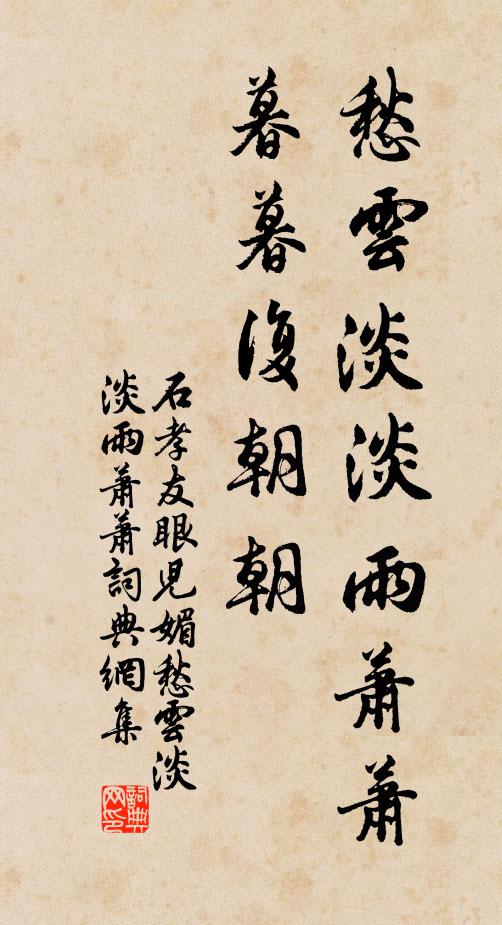 愁雲淡淡雨蕭蕭
暮暮復朝朝
石孝友眼兒媚愁雲淡
淡雨蕭蕭詞典網集
詞典
网印